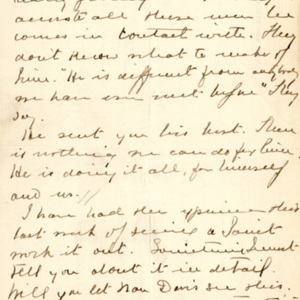 all these men he
comes in contact with. They
don't know what to make of
him. "He is different from anybody
we have ever met before" they
say.
He sent you his best. There
is nothing we can do for him.
He is doing it all, for himself
and us.
I have had the experience this
last week of seeing a Saint
work it out. Sometime I must
tell you about it in detail.
Will you let Davis see this.